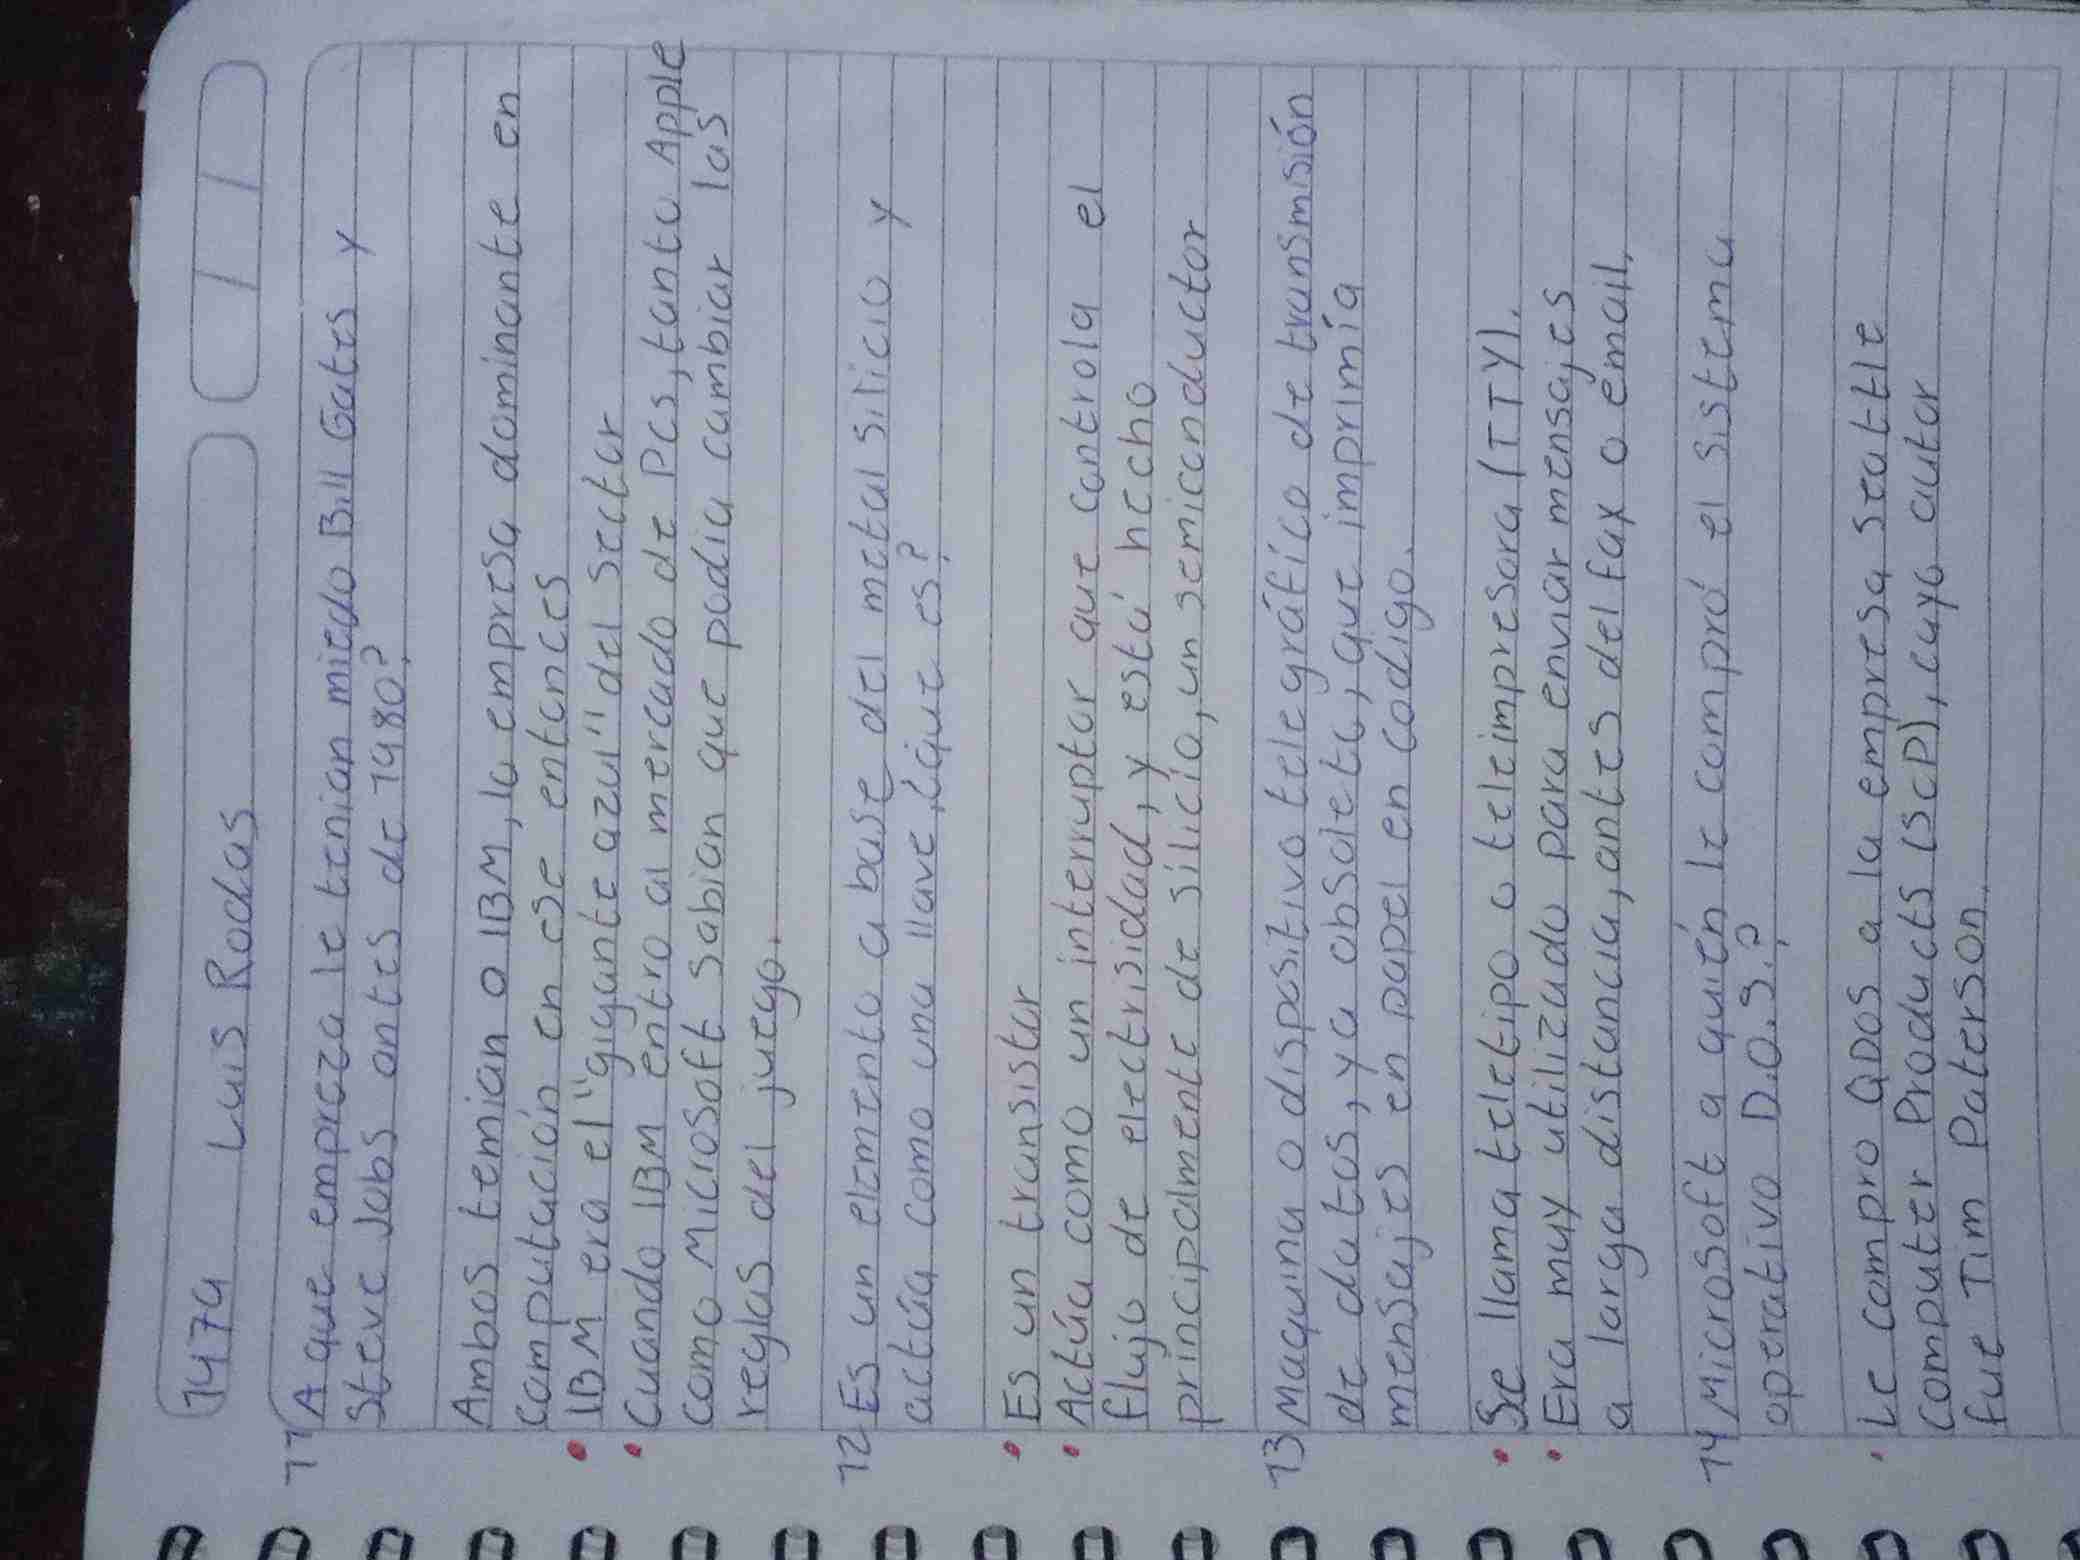 1479 Luis Rodas
11 A que empreza le tenian miedo Bill Gates y
Steve Jobs antes de 1980?
Ambos temian a IBM, la empresa dominante en
computación en ese entonces
• IBM era el "gigante azul" del sector
• Cuando IBM entro al mercado de PCs, tanto Apple
como Microsoft sabian que podia cambiar las
reglas del juego.
12 Es un elemento a base del metal silicio y
actúa como una llave, ¿que es?
• Es un transistor
• Actúa como un interruptor que controla el
flujo de electrisidad, y está hecho
principalmente de silicio, un semiconductor
13 Maquina o dispositivo telegráfico de transmisión
de datos, ya obsoleto, que imprimía
mensajes en papel en codigo.
• Se llama teletipo o teleimpresora (TTY).
• Era muy utilizado para enviar mensajes
a larga distancia, antes del fax o email.
14 Microsoft a quién le compró el sistema
operativo D.O.S.?
• Le compro QDOS a la empresa seattle
computer Products (SCP), cuyo autor
fue Tim Paterson.